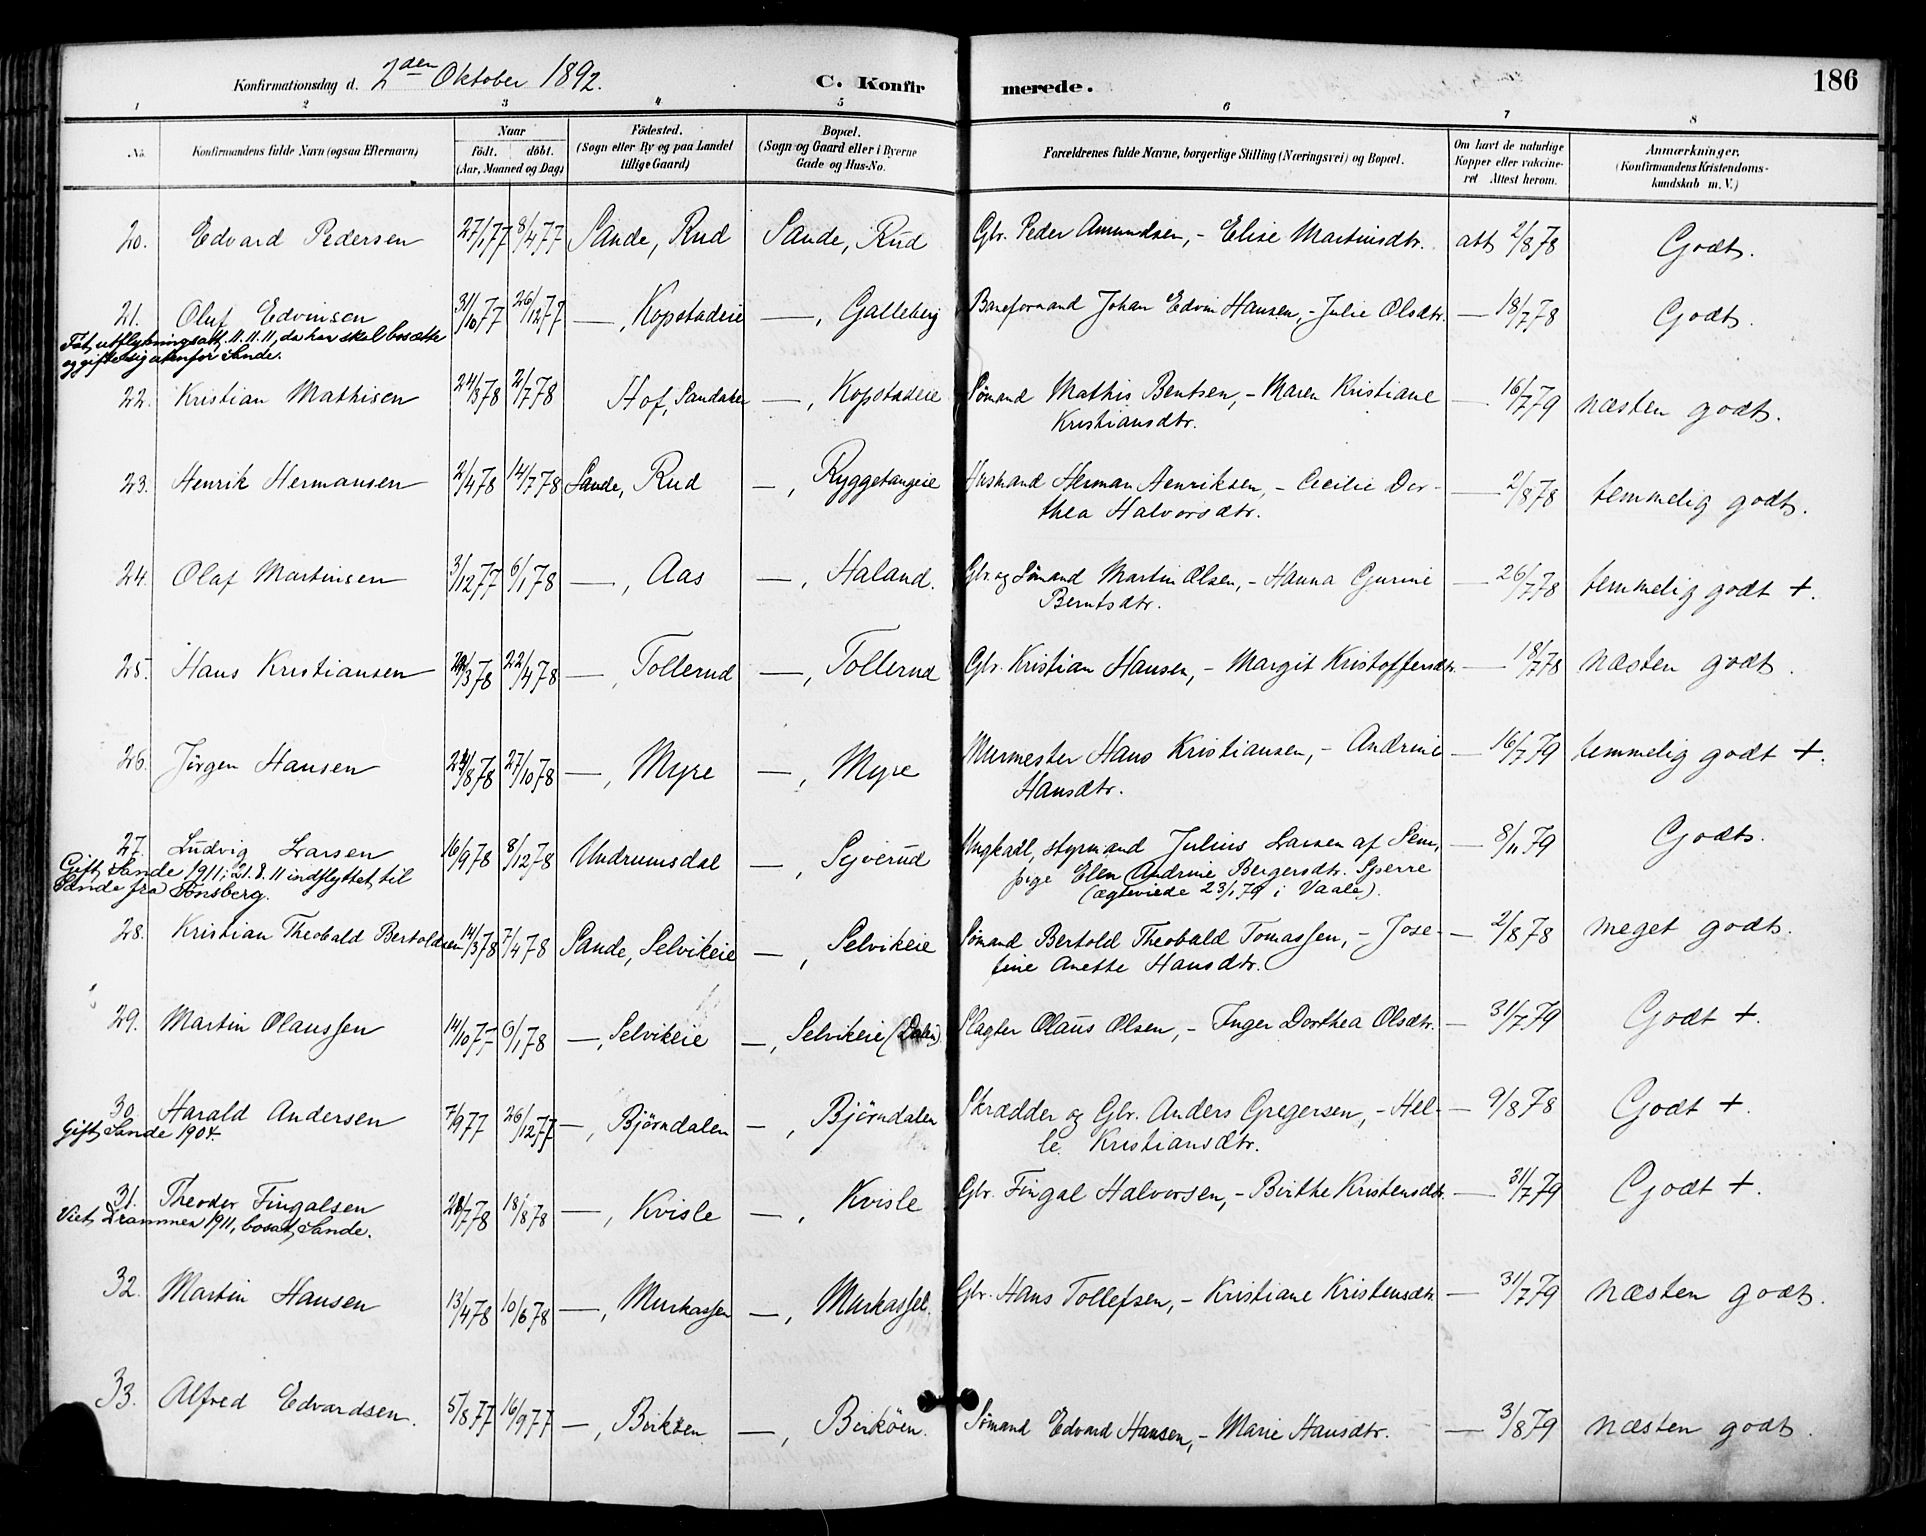 Konfirmationsdag d. 2den Oktober 1892. C. Konfirmerede. 186
1 2 3 4 5 6 7 8
No. Konfirmandens fulde Navn (ogsaa Efternavn) Naar födt. döbt. (Aar, Maaned og Dag) Födested. (Sogn eller By og paa Landet tillige Gaard) Bopæl. (Sogn og Gaard eller i Byerne Gade og Hus-No. Forældrenes fulde Navne, borgerlige Stilling (Næringsvei) og Bopæl. Om havt de naturlige Kopper eller vakcineret Attest herom. Anmærkninger. (Konfirmandens Kristendomskundskab m. V.)
20. Edvard Pedersen 27/1 77 8/4 77 Sande, Rud Sande, Rud Gbr. Peder Amundsen, - Elise Martinsdtr. att 2/8 78 Godt.
21. Oluf Edvinsen 31/10 77 26/12 77 —, Kopstadeie —, Galleberg Baneformand Johan Edvin Hansen, - Julie Olsdtr. — 18/7 78 Godt.
Fåt utflytningsatt. 11.11.11, da han skal bosætte
og gifte sig utenfor Sande.
22. Kristian Mathisen 24/3 78 2/7 78 Hof, Sandaker —, Kopstadeie Sømand Mathis Bentsen, - Maren Kristiane — 16/7 79 næsten godt.
Kristiansdtr.
23. Henrik Hermansen 2/4 78 14/7 78 Sande, Rud —, Ryggetangeie Husmand Herman Henriksen, - Cecilie Dor- — 2/8 78 temmelig godt.
thea Halvorsdtr.
24. Olaf Martinsen 3/12 77 6/1 78 —, Aas —, Haland. Gbr. og Sømand Martin Olsen, - Hanna Gurine — 26/7 78 temmelig godt +.
Berntsdtr.
25. Hans Kristiansen /3 78 22/4 78 —, Tollerud —, Tollerud Gbr. Kristian Hansen, - Margit Kristoffersdtr. — 18/7 78 næsten godt.
26. Jörgen Hansen /8 78 27/10 78 —, Myre —, Myre Murmester Hans Kristiansen, - Andrine — 16/7 79 temmelig godt +.
Hansdtr.
27. Ludvig Larsen 16/9 78 8/12 78 Undrumsdal —, Syverud Ungkarl, styrmand Julius Larsen af Sem, — 8/11 79 Godt.
Gift, Sande 1911; 21.8.11 indflyttet til pige Ellen Andrine Bergersdtr. Sperre
Sande fra Tønsberg. (ægteviede 23/1 79 i Vaale).
28. Kristian Theobald Bertoldsen 14/3 78 7/4 78 Sande, Selvikeie —, Selvikeie Sømand Bertold Theobald Tomassen, - Jose- — 2/8 78 meget godt.
fine Anette Hansdtr.
29. Martin Olaussen 14/10 77 6/1 78 —, Selvikeie —, Selvikeie (Dalen) Slagter Olaus Olsen, - Inger Dorthea Olsdtr. — 31/7 79 Godt +.
30. Harald Andersen 7/9 77 26/12 77 —, Bjørndalen —, Bjørndalen Skrædder og Gbr. Anders Gregersen, - Hel- — 9/8 78 Godt +.
Gift, Sande 1904. le Kristiansdtr.
31. Theodor Fingalsen /7 78 18/8 78 —, Kvisle —, Kvisle Gbr. Fingal Halvorsen, - Birthe Kristensdtr. — 31/7 79 Godt +.
Viet, Drammen 1911, bosat, Sande.
32. Martin Hansen 13/4 78 10/6 78 —, Murkassen —, Murkassel. Gbr. Hans Tollefsen, - Kristiane Kristensdtr. — 31/7 79 næsten godt.
33. Alfred Edvardsen. 5/8 77 16/9 77 —, Birköen —, Birköen. Sømand Edvard Hansen, - Marie Hansdtr. — 3/8 79 næsten godt.